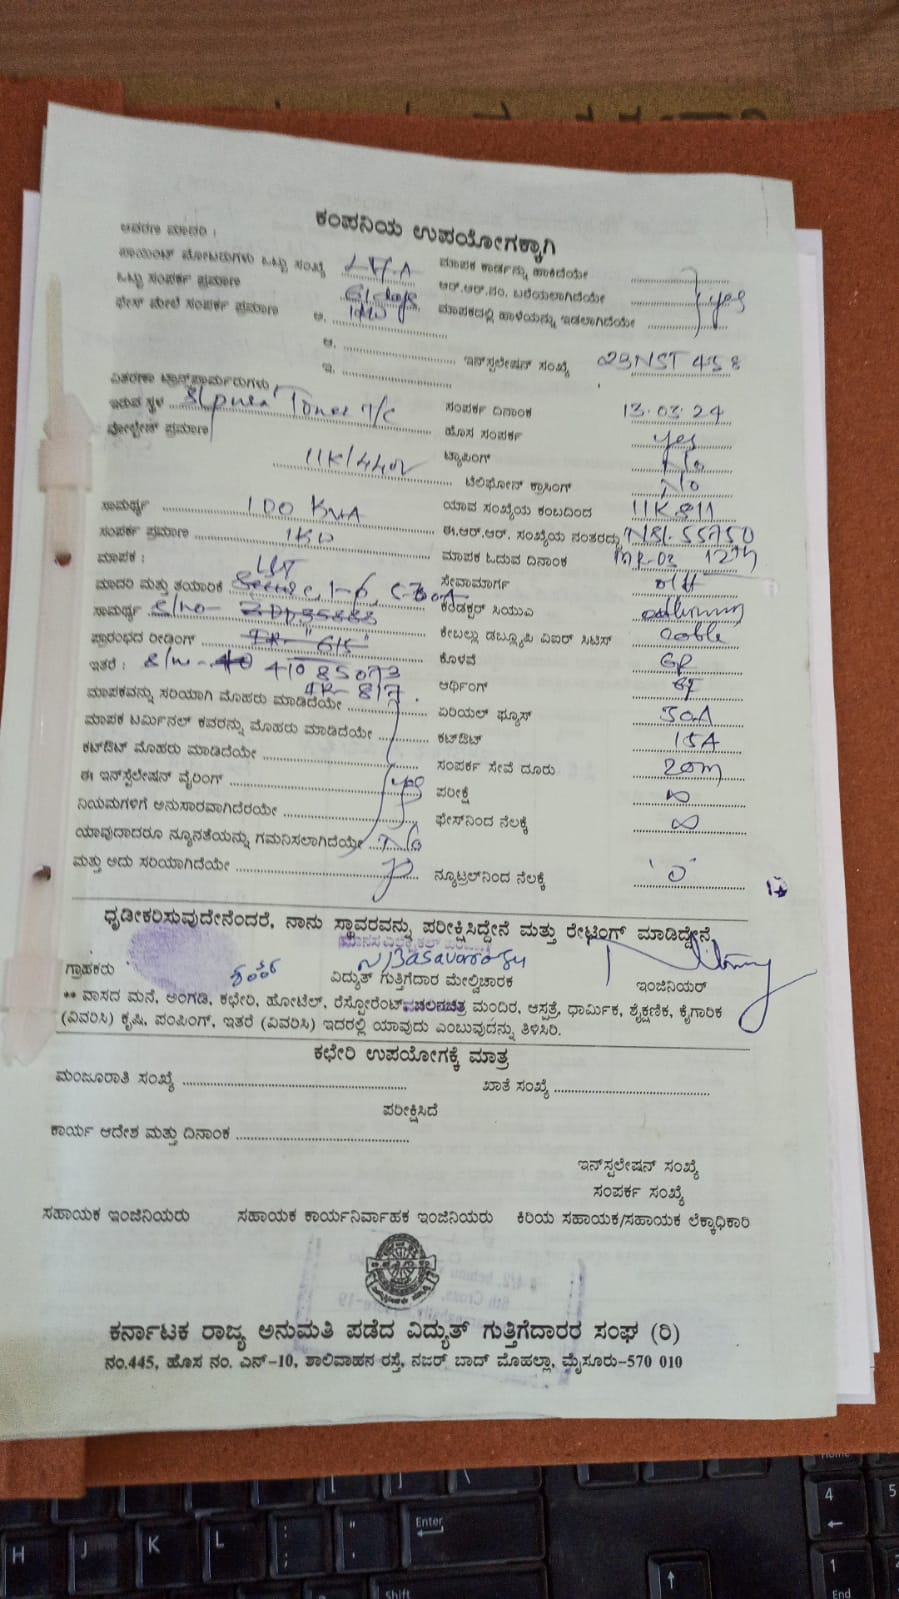 ಕಂಪನಿಯ ಉಪಯೋಗಕ್ಕಾಗಿ
ಆವರಣ ಮಾದರಿ :
ಪಾಯಿಂಟ್ ಮೋಟರುಗಳು ಒಟ್ಟು ಸಂಖ್ಯೆ ಮಾಪಕ ಕಾರ್ಡನ್ನು ಹಾಕಿದೆಯೇ
ಒಟ್ಟು ಸಂಪರ್ಕ ಪ್ರಮಾಣ ಆರ್.ಆರ್.ನಂ. ಬರೆಯಲಾಗಿದೆಯೇ yes
ಫೇಸ್ ಮೇಲೆ ಸಂಪರ್ಕ ಪ್ರಮಾಣ ಅ. 1KW ಮಾಪಕದಲ್ಲಿ ಹಾಳೆಯನ್ನು ಇಡಲಾಗಿದೆಯೇ
ಆ. ಇನ್‌ಸ್ಟಲೇಷನ್ ಸಂಖ್ಯೆ 23NST 458
ಇ.
ವಿತರಣಾ ಟ್ರಾನ್ಸ್‌ಫಾರ್ಮರುಗಳು
ಇರುವ ಸ್ಥಳ Tower T/C ಸಂಪರ್ಕ ದಿನಾಂಕ 13.03.24
ವೋಲ್ಟೇಜ್ ಪ್ರಮಾಣ ಹೊಸ ಸಂಪರ್ಕ yes
11K/440V ಟ್ಯಾಪಿಂಗ್ No
ಟೆಲಿಫೋನ್ ಕ್ರಾಸಿಂಗ್ No
ಸಾಮರ್ಥ್ಯ 100 KVA ಯಾವ ಸಂಖ್ಯೆಯ ಕಂಬದಿಂದ 11K811
ಸಂಪರ್ಕ ಪ್ರಮಾಣ 1KW ಈ.ಆರ್.ಆರ್. ಸಂಖ್ಯೆಯ ನಂತರದ್ದು NSL 55750
ಮಾಪಕ : ಮಾಪಕ ಓದುವ ದಿನಾಂಕ MR-03 12th
ಮಾದರಿ ಮತ್ತು ತಯಾರಿಕೆ Secure, 1-ϕ, 5-30A ಸೇವಾಮಾರ್ಗ O/H
ಸಾಮರ್ಥ್ಯ S/no- ಕಂಡಕ್ಟರ್ ಸಿಯುಎ
ಪ್ರಾರಂಭದ ರೀಡಿಂಗ್ ಕೇಬಲ್ಲು ಡಬ್ಲ್ಯೂಪಿ ವಿಐರ್ ಸಿಟಿಸ್ cable
ಇತರೆ : S/no- 41085073 ಕೊಳವೆ GP
IR- 817. ಆರ್ಥಿಂಗ್
ಮಾಪಕವನ್ನು ಸರಿಯಾಗಿ ಮೊಹರು ಮಾಡಿದೆಯೇ ಏರಿಯಲ್ ಫ್ಯೂಸ್ 30A
ಮಾಪಕ ಟರ್ಮಿನಲ್ ಕವರನ್ನು ಮೊಹರು ಮಾಡಿದೆಯೇ ಕಟ್‌ಔಟ್ 15A
ಕಟ್‌ಔಟ್ ಮೊಹರು ಮಾಡಿದೆಯೇ ಸಂಪರ್ಕ ಸೇವೆ ದೂರು 20m
ಈ ಇನ್‌ಸ್ಟಲೇಷನ್ ವೈರಿಂಗ್ yes ಪರೀಕ್ಷೆ ∞
ನಿಯಮಗಳಿಗೆ ಅನುಸಾರವಾಗಿದೆರಯೇ ಫೇಸ್‌ನಿಂದ ನೆಲಕ್ಕೆ ∞
ಯಾವುದಾದರೂ ನ್ಯೂನತೆಯನ್ನು ಗಮನಿಸಲಾಗಿದೆಯೇ No
ಮತ್ತು ಅದು ಸರಿಯಾಗಿದೆಯೇ ನ್ಯೂಟ್ರಲ್‌ನಿಂದ ನೆಲಕ್ಕೆ '0'
ಧೃಡೀಕರಿಸುವುದೇನೆಂದರೆ, ನಾನು ಸ್ಥಾವರವನ್ನು ಪರೀಕ್ಷಿಸಿದ್ದೇನೆ ಮತ್ತು ರೇಟಿಂಗ್ ಮಾಡಿದ್ದೇನೆ.
N Basavaraju
ಗ್ರಾಹಕರು ವಿದ್ಯುತ್ ಗುತ್ತಿಗೆದಾರ ಮೇಲ್ವಿಚಾರಕ ಇಂಜಿನಿಯರ್
** ವಾಸದ ಮನೆ, ಅಂಗಡಿ, ಕಛೇರಿ, ಹೋಟೆಲ್, ರೆಸ್ಟೋರೆಂಟ್, ಚಲನಚಿತ್ರ ಮಂದಿರ, ಆಸ್ಪತ್ರೆ, ಧಾರ್ಮಿಕ, ಶೈಕ್ಷಣಿಕ, ಕೈಗಾರಿಕ
(ವಿವರಿಸಿ) ಕೃಷಿ, ಪಂಪಿಂಗ್, ಇತರೆ (ವಿವರಿಸಿ) ಇದರಲ್ಲಿ ಯಾವುದು ಎಂಬುವುದನ್ನು ತಿಳಿಸಿರಿ.
ಕಛೇರಿ ಉಪಯೋಗಕ್ಕೆ ಮಾತ್ರ
ಮಂಜೂರಾತಿ ಸಂಖ್ಯೆ ಖಾತೆ ಸಂಖ್ಯೆ
ಪರೀಕ್ಷಿಸಿದೆ
ಕಾರ್ಯ ಆದೇಶ ಮತ್ತು ದಿನಾಂಕ
ಇನ್‌ಸ್ಟಲೇಷನ್ ಸಂಖ್ಯೆ
ಸಂಪರ್ಕ ಸಂಖ್ಯೆ
ಸಹಾಯಕ ಇಂಜಿನಿಯರು ಸಹಾಯಕ ಕಾರ್ಯನಿರ್ವಾಹಕ ಇಂಜಿನಿಯರು ಕಿರಿಯ ಸಹಾಯಕ/ಸಹಾಯಕ ಲೆಕ್ಕಾಧಿಕಾರಿ
ಕರ್ನಾಟಕ ರಾಜ್ಯ ಅನುಮತಿ ಪಡೆದ ವಿದ್ಯುತ್ ಗುತ್ತಿಗೆದಾರರ ಸಂಘ (ರಿ)
ನಂ.445, ಹೊಸ ನಂ. ಎನ್-10, ಶಾಲಿವಾಹನ ರಸ್ತೆ, ನಜರ್ ಬಾದ್ ಮೊಹಲ್ಲಾ, ಮೈಸೂರು-570 010
Home
4 5
Enter
H J K L : ; " '
1 End
Shift